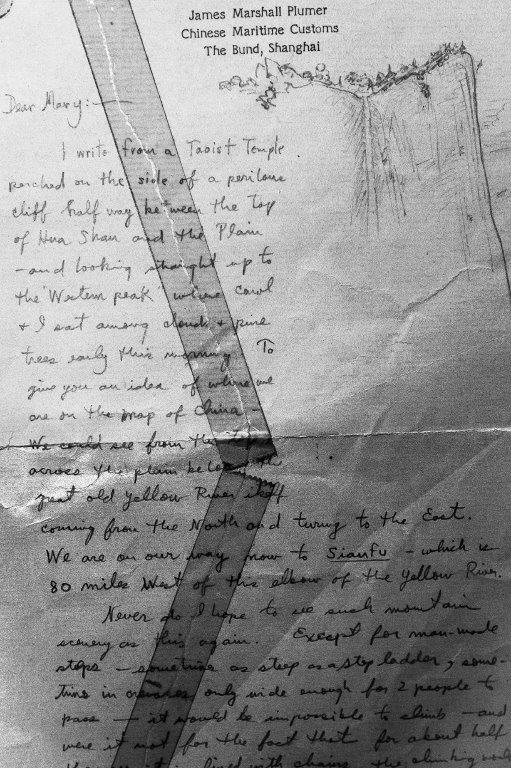 James Marshall Plumer
Chinese Maritime Customs
The Bund, Shanghai
Dear Mary:—
I write from a Taoist Temple
perched on the side of a perilous
cliff half way between the Top
of Hua Shan and the Plain
- and looking straight up to
the "Western peak" where Carol
& I sat among clouds & pine
trees early this morning. To
give you an idea of where we
are on the map of China -
We could see from the
across the plain below the
great old Yellow River itself
coming from the North and turing to the East.
We are on our way now to Sianfu - which is
80 miles West of this elbow of the Yellow River.
Never do I hope to see such mountain
scenery as this again. Except for man-made
steps - sometimes as steep as a step ladder, some-
times in crevices only wide enough for 2 people to
pass - it would be impossible to climb - and
were it not for the fact that for about half
lined with chains the climbing